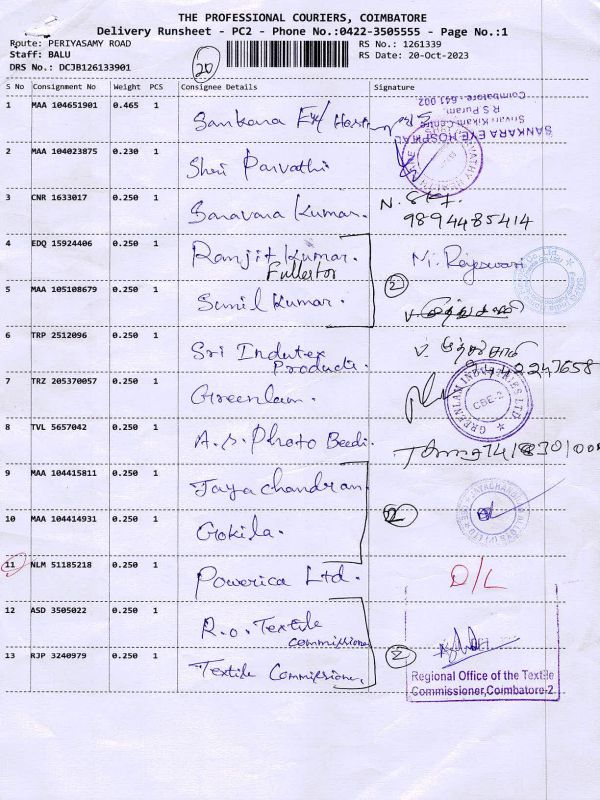 THE PROFESSIONAL COURIERS, COIMBATORE
Delivery Runsheet - PC2 - Phone No.:0422-3505555 - Page No.:1
Route: PERIYASAMY ROAD
Staff: BALU
DRS No.: DCJB126133901
20
RS No.: 1261339
RS Date: 20-Oct-2023
S No Consignment No Weight PCS Consignee Details Signature
1 MAA 104651901 0.465 1 Sankara Eye
SANKARA EYE HOSPITAL
R S Puram,
Coimbatore - 641 002
2 MAA 104023875 0.230 1 Shri Parvathi
3 CNR 1633017 0.250 1 Saravana Kumar.
9894485414
4 EDQ 15924406 0.250 1 Ranjit Kumar. M. Rajeswari
Fullerton
5 MAA 105108679 0.250 1 Sunil Kumar. 2
6 TRP 2512096 0.250 1 Sri Indutex
Products.
9442247658
7 TRZ 205370057 0.250 1 Greenlam.
GREENLAM INDUSTRIES LTD
CBE-2
8 TVL 5657042 0.250 1 A.S. Photo Beedi.
9 MAA 104415811 0.250 1 Jayachandran
10 MAA 104414931 0.250 1 Gokila. 2
11 NLM 51185218 0.250 1 Powerica Ltd. D/L
12 ASD 3505022 0.250 1 R.O. Textile
commissioner
13 RJP 3240979 0.250 1 Textile Commissioner 2
Regional Office of the Textile
Commissioner,Coimbatore-2